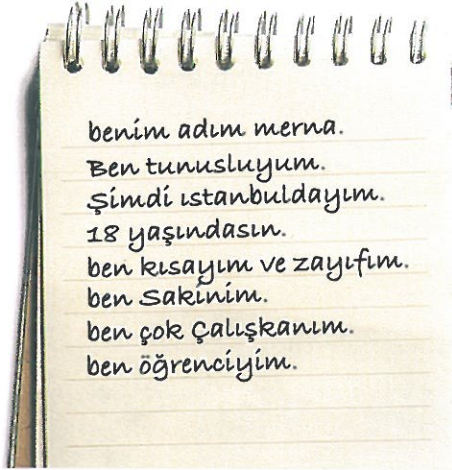 benim adım merna.
Ben tunusluyum.
Şimdi ıstanbuldayım.
18 yaşındasın.
ben kısayım ve zayıfım.
ben Sakinim.
ben çok Çalışkanım.
ben öğrenciyim.